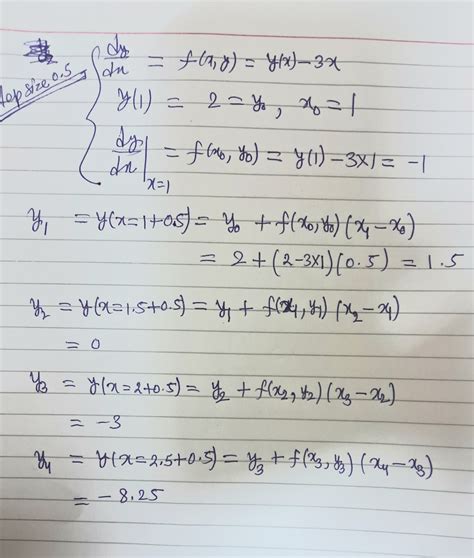 dy/dx = f(x,y) = y(x) - 3x
step size 0.5
y(1) = 2 = y₀, x₀ = 1
dy/dx|ₓ₌₁ = f(x₀, y₀) = y(1) - 3×1 = -1
y₁ = y(x=1+0.5) = y₀ + f(x₀,y₀)(x₁-x₀)
= 2 + (2-3×1)(0.5) = 1.5
y₂ = y(x=1.5+0.5) = y₁ + f(x₁,y₁)(x₂-x₁)
= 0
y₃ = y(x=2+0.5) = y₂ + f(x₂,y₂)(x₃-x₂)
= -3
y₄ = y(x=2.5+0.5) = y₃ + f(x₃,y₃)(x₄-x₃)
= -8.25